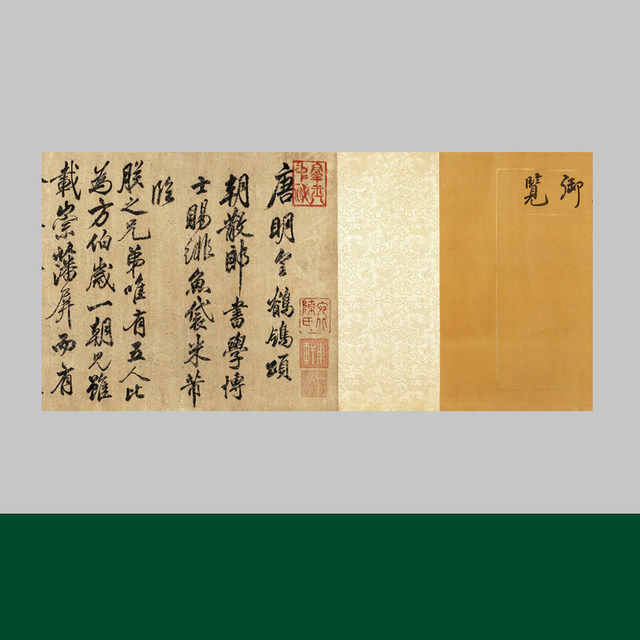 御
覽
唐明皇鶺鴒頌
朝散郎書學博
士賜緋魚袋米芾
臨
朕之兄弟唯有五人比
為方伯歲一朝見雖
載崇藩屏而有